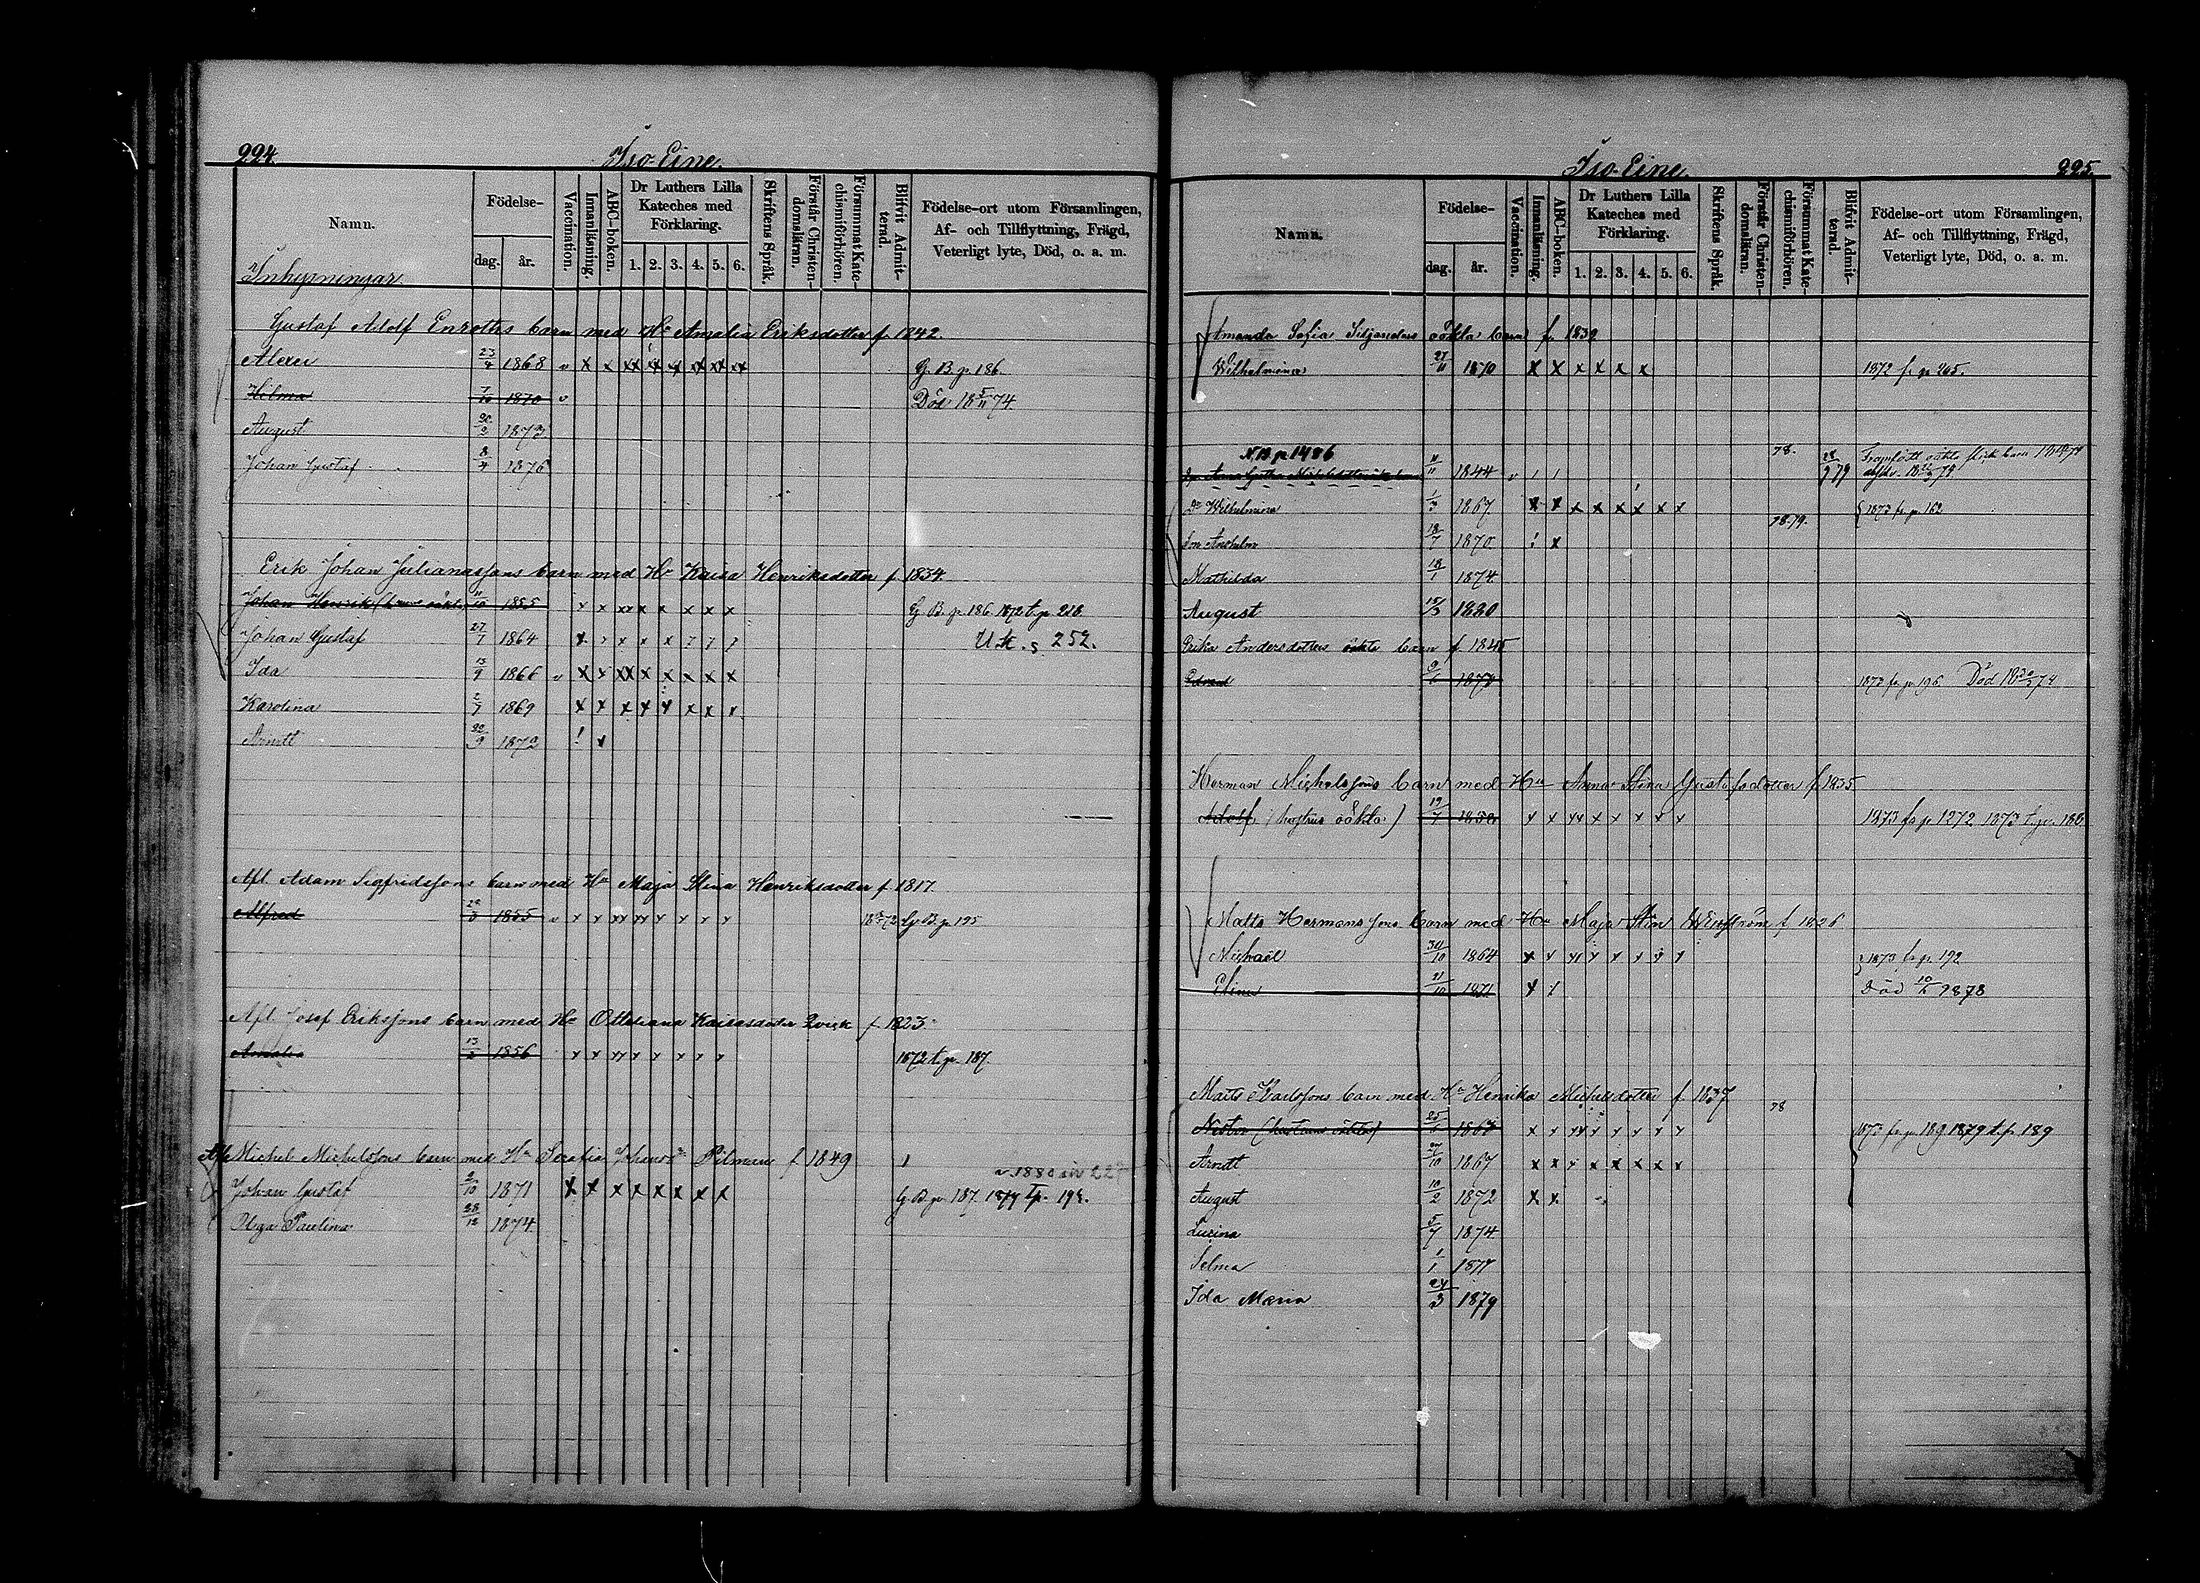 224.
Iso-Eine.
Namn.
Födelse-
dag.
år.
Vaccination.
Innanläsning.
ABC-boken.
Dr Luthers Lilla Kateches med Förklaring.
1. 2. 3. 4. 5. 6.
Skriftens Språk.
Förstår Christendomsläran.
Försummat Katechismiförhören.
Blifvit Admitterad.
Födelse-ort utom Församlingen, Af- och Tillflyttning, Frägd, Veterligt lyte, Död, o. a. m.
Inhysningar
Gustaf Adolf Enrotts barn med Hu Amalia Eriksdotter f. 1842.
Alexei 23/4 1868 v x x xx xx xx xx xx xx G. B. p. 186.
Hilma 7/10 1870 v Död 18 5/11 74.
August 20/2 1873.
Johan Gustaf 8/4 1876
Erik Johan Julianassons barn med Hu Kaisa Henriksdotter f. 1834.
Johan Henrik 11/10 1855 x x xx x x x x x G. B. p. 186. 1872 t. p. 218.
Johan Gustaf 27/7 1864 x x x x x 252.
Ida 13/9 1866 v x x xx x x x x x
Karolina 2/7 1869 x x x x x x x x
Arvitt 22/9 1872 ! x
Afl. Adam Sigfridssons barn med Hu Maja Stina Henriksdotter f. 1817.
Alfred 29/3 1855 v x x xx xx x x x x G. B. p. 195
Afl. Josef Erikssons barn med Hu Ottiliana Kaisasdotter Qvick f. 1823.
Amalia 13/2 1856 x x xx x x x x x 1872 t. p. 187.
Afl. Michel Michelssons barn med Hu Serafia Johansdr Pilman f. 1849
Johan Gustaf 2/10 1871 x x x x x x x x G. B. p. 187. 1877 fr. p. 198.
Olga Paulina 28/12 1874.
Iso-Eine.
225.
Namn.
Födelse-
dag.
år.
Vaccination.
Innanläsning.
ABC-boken.
Dr Luthers Lilla Kateches med Förklaring.
1. 2. 3. 4. 5. 6.
Skriftens Språk.
Förstår Christendomsläran.
Försummat Katechismiförhören.
Blifvit Admitterad.
Födelse-ort utom Församlingen, Af- och Tillflyttning, Frägd, Veterligt lyte, Död, o. a. m.
Amanda Sofia Siljanders oäkta barn f. 1839
Wilhelmina 21/11 1870 x x x x x x 1872 fr. p. 205.
N.B. p. 1486
11/11 1844 v / / 78. Framfödt oäkta flickbarn
Dr Wilhelmina 1/3 1867 x x x x x x x x 1873 fr. p. 162
Son Anshelm 18/7 1870 ! x 78.79.
Mathilda 18/1 1874.
August 15/3 1880
Erika Andersdotters oäkta barn f. 1845
Edvard 9/6 1873 1873 fr. p. 196. Död 18 30/3 74
Herman Michelssons barn med Hu Anna Stina Gustafsdotter f. 1835
Adolf (hustrus oäkta) 19/7 1858 x x xx x x x x x 1873 fr. p. 1272 1873 t. p. 180
Matts Hermanssons barn med Hu Maja Stin Wikström f. 1826
Michael 30/10 1864 x x xx x x x x x 1873 fr. p. 192
Elina 21/10 1871 x x Död 10/5 1878
Matts Karlssons barn med Hu Henrika Michelsdotter f. 1837 78
Nestor (hustruns oäkta) 25/1 1863 x x xx x x x x x 1873 fr. p. 189 1879 t. p. 189
Arvitt 27/10 1867 x x x x x x x x
August 10/2 1872 x x
Lucina 5/7 1874
Selma 1/1 1877
Ida Maria 24/3 1879